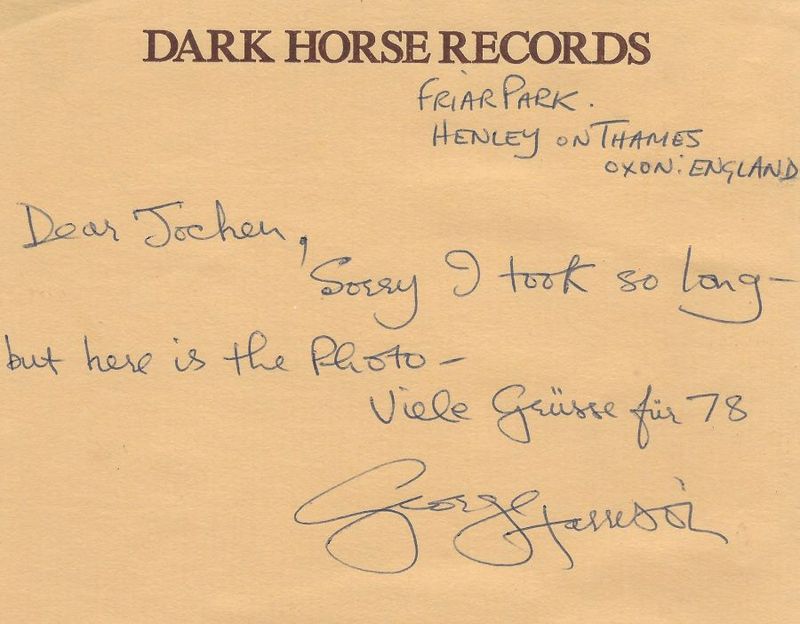 DARK HORSE RECORDS
FRIAR PARK.
HENLEY ON THAMES
OXON: ENGLAND
Dear Jochen,
Sorry I took so long -
but here is the Photo -
Viele Grüsse für 78
George Harrison